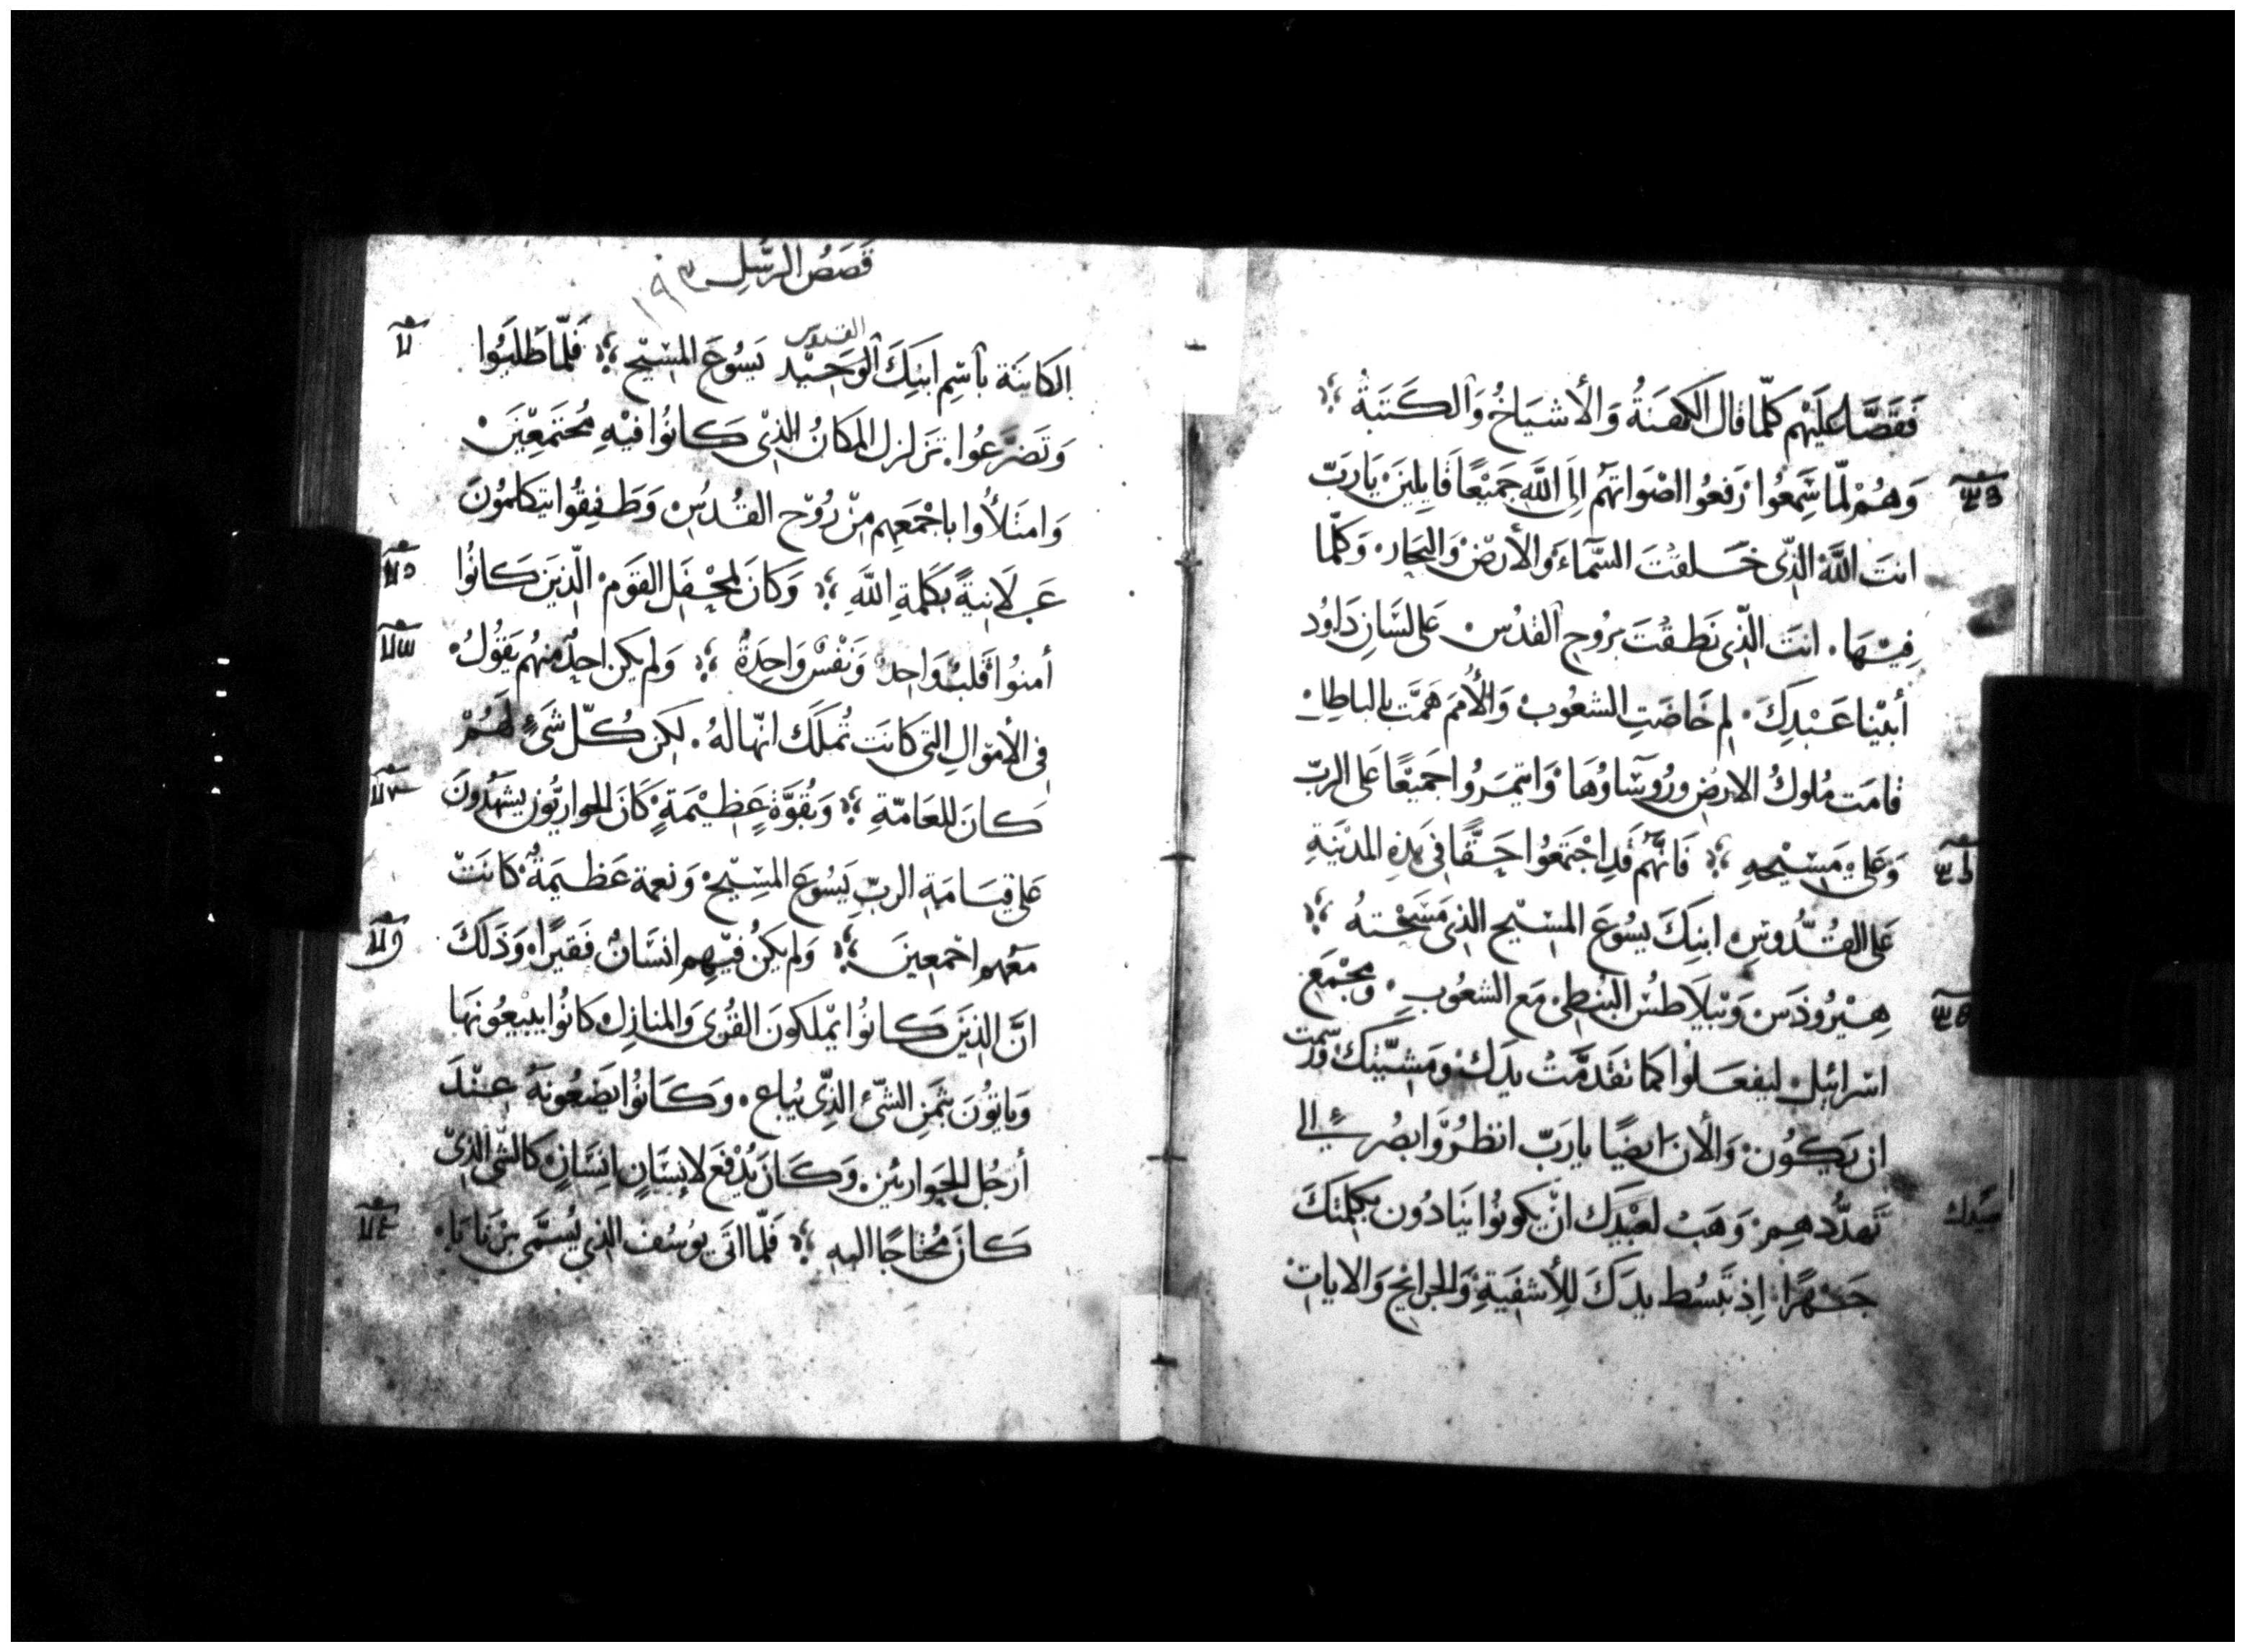 فَقَصَّا عَلَيْهِم كلّما قال الكَهَنَةُ وَالأشيَاخُ وَالكَتَبَةُ ؛
وَهُمْ لمّا سَمِعُوا رَفعُوا اصْوَاتهُم إلَى اللَّهِ جَمِيْعًا قَايِلينَ يَارَبّ
انتَ اللَّهُ الذّى خَلقتَ السَّمَاءَ وَالأرْضَ وَالبحَارَ وَكلّما
فِيْهَا. انتَ الذّى نَطقتَ برُوح القدُس عَلى لسَانِ دَاوُد
أبيْنا عَبْدِكَ. لِمَ خَاضَتِ الشعُوبُ وَالأُمَمَ هَمَّت بالباطِل
قامَت مُلوكُ الارضِ ورُوسَاوُهَا وَايتمَرُوا جَميْعًا عَلى الربّ
وَعَلى مَسِيْحِهِ ؛ فَانَّهُم قَدِ اجْتَمَعُوا حَقًّا فى هَذِهِ المدْيَنةِ
عَلى القُدُّوسِ ابنِكَ يسُوعَ المسِيْح الذى مَسَحْتهُ ؛
هِيْرُوذَس وَبْيلاَطسُ البُنطى مَع الشعُوبِ. وَمجْمَع
اسْرائيل ليفعَلوُا كما تقَدمَّتْ يدَك وَمَشيّتك وَرسَمت
ان يَكوُن وَالأن ايضًا يارَبّ انظُرْ وَابصُر إلى
تَهدُّدهِم وَهَبْ لعَبْيدِك انْ يَكونوُا يُنَادُون بكلِمَتكَ
جَهْرًا إذ تَبسُط يدَكَ لِلأشفيَةِ وَالجرَايحِ وَالايات
قَصَصُ الرسُلِ ١٩٣
الكاينَة بأسْمِ ابنِكَ الوَحيْد القدوس يَسُوعَ المسِيْح ؛ فَلمَّا طَلبُوا
وَتَضرَّعُوا. تزلزل المكانُ الذى كانُوا فيْهِ مُجتَمعْينَ
وَامتَلأُوا باجْمعَهِم مِنْ رُوْح القدُسِ وَطَفِقُوا يتكلمُونَ
عَلانِيةً بكلمَةِ اللَّهِ ؛ وَكانَ لمحْفَل القوَمِ الّذينَ كانوُا
أمنوُا قَلبٌ وَاحِدٌ وَنَفْسٌ وَاحِدَةٌ ؛ وَلم يكن احدٌ منهُم يَقُولُ
فى الأموَالِ التى كانَت تُملَك انّها لهُ. لكِن كُلّ شَىءٍ لهُمْ
كانَ للعَامّةِ ؛ وَبقُوّةٍ عَظيْمَةٍ كَانَ الحواريُّونَ يشهَدُونَ
عَلى قيَامَةِ الربِّ يَسُوع المسِيْح وَنعمة عَظيمَةٌ كانَتْ
مَعَهم اجْمعِينَ ؛ وَلم يكنُ فيْهِم انسَانٌ فَقيرًا وَذَلكَ
انَّ الذينَ كانوُا يمْلكونَ القرَى وَالمنازِل كانوُا يبيْعُونهَا
وَياتُونَ بثمَنِ الشىء الذّى يُباع. وَكَانوُا يَضعُونهُ عِنْدَ
أرْجُل الحواريين. وَكَانَ يُدْفَع لانِسَانٍ انِسَانٍ كالشى الذىْ
كانَ مُحتاجًا اليهِ ؛ فَلمَّا اتَى يوُسُف الذى يُسَمَّى برْنَابَا.